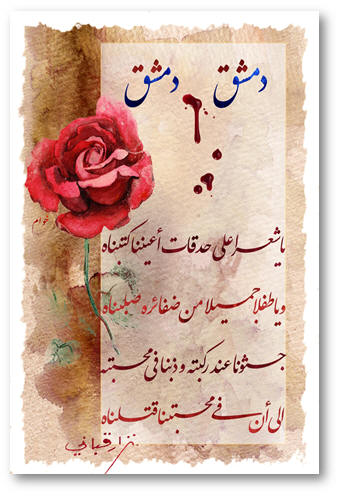 دمشق دمشق
يا شعرا على حدقات أعيننا كتبناه
ويا طفلا جميلا من ضفائره صلبناه
جثونا عند ركبته وذبنا في محبته
الى أن في محبتنا قتلناه
نزار قباني